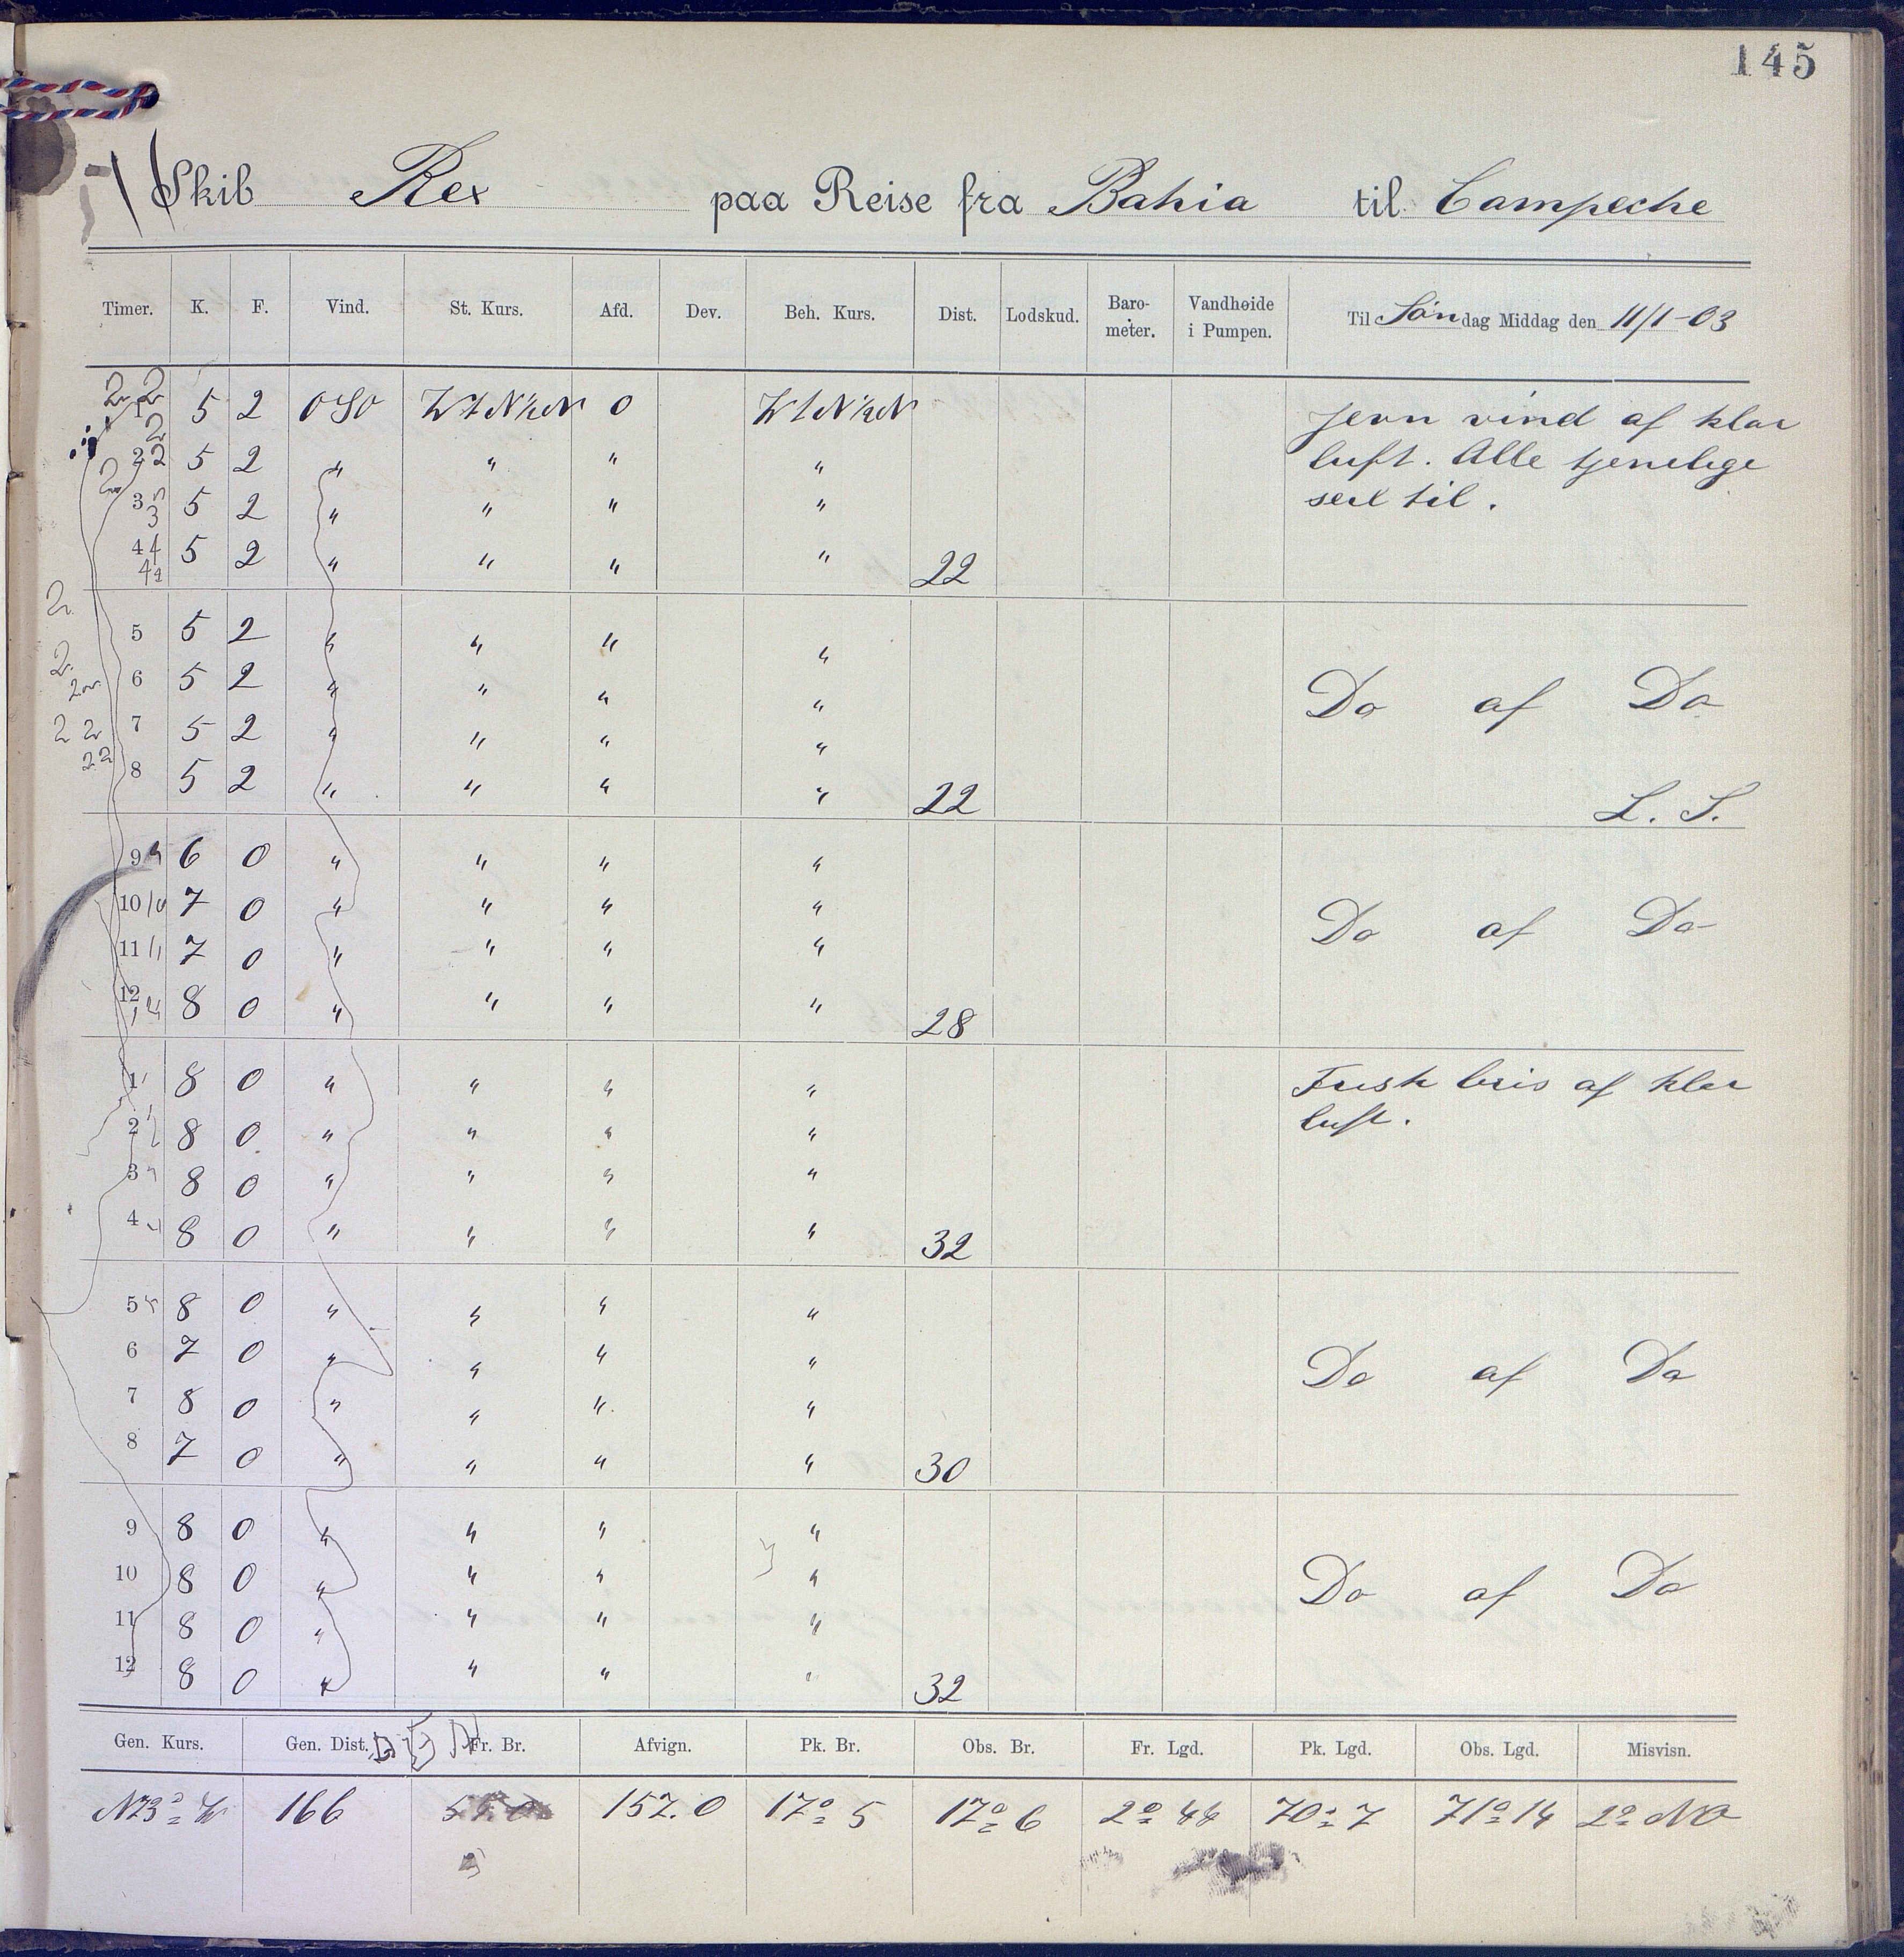 145
Skib Rex paa Reise fra Bahia til Campeche
Timer. K. F. Vind. St. Kurs. Afd. Dev. Beh. Kurs. Dist. Lodskud. Baro-meter. Vandhøide i Pumpen. Til Søndag Middag den 11/1-03
1 5 2 OSO WtN½N 0 WtN½N Jevn vind af klar
2 5 2 " " " " luft. Alle tjenelige
3 5 2 " " " " seil til.
4 5 2 " " " " 22
5 5 2 " " " "
6 5 2 " " " " Do af Do
7 5 2 " " " "
8 5 2 " " " " 22 L. S.
9 6 0 " " " "
10 7 0 " " " " Do af Do
11 7 0 " " " "
12 8 0 " " " " 28
1 8 0 " " " " Frisk bris af klar
2 8 0 " " " " luft.
3 8 0 " " " "
4 8 0 " " " " 32
5 8 0 " " " "
6 7 0 " " " " Do af Do
7 8 0 " " " "
8 7 0 " " " " 30
9 8 0 " " " "
10 8 0 " " " " Do af Do
11 8 0 " " " "
12 8 0 " " " " 32
Gen. Kurs. Gen. Dist. Fr. Br. Afvign. Pk. Br. Obs. Br. Fr. Lgd. Pk. Lgd. Obs. Lgd. Misvisn.
N73° W 166 157.0 17° 5 17° 6 2° 44 70° 7 71° 14 2° NO